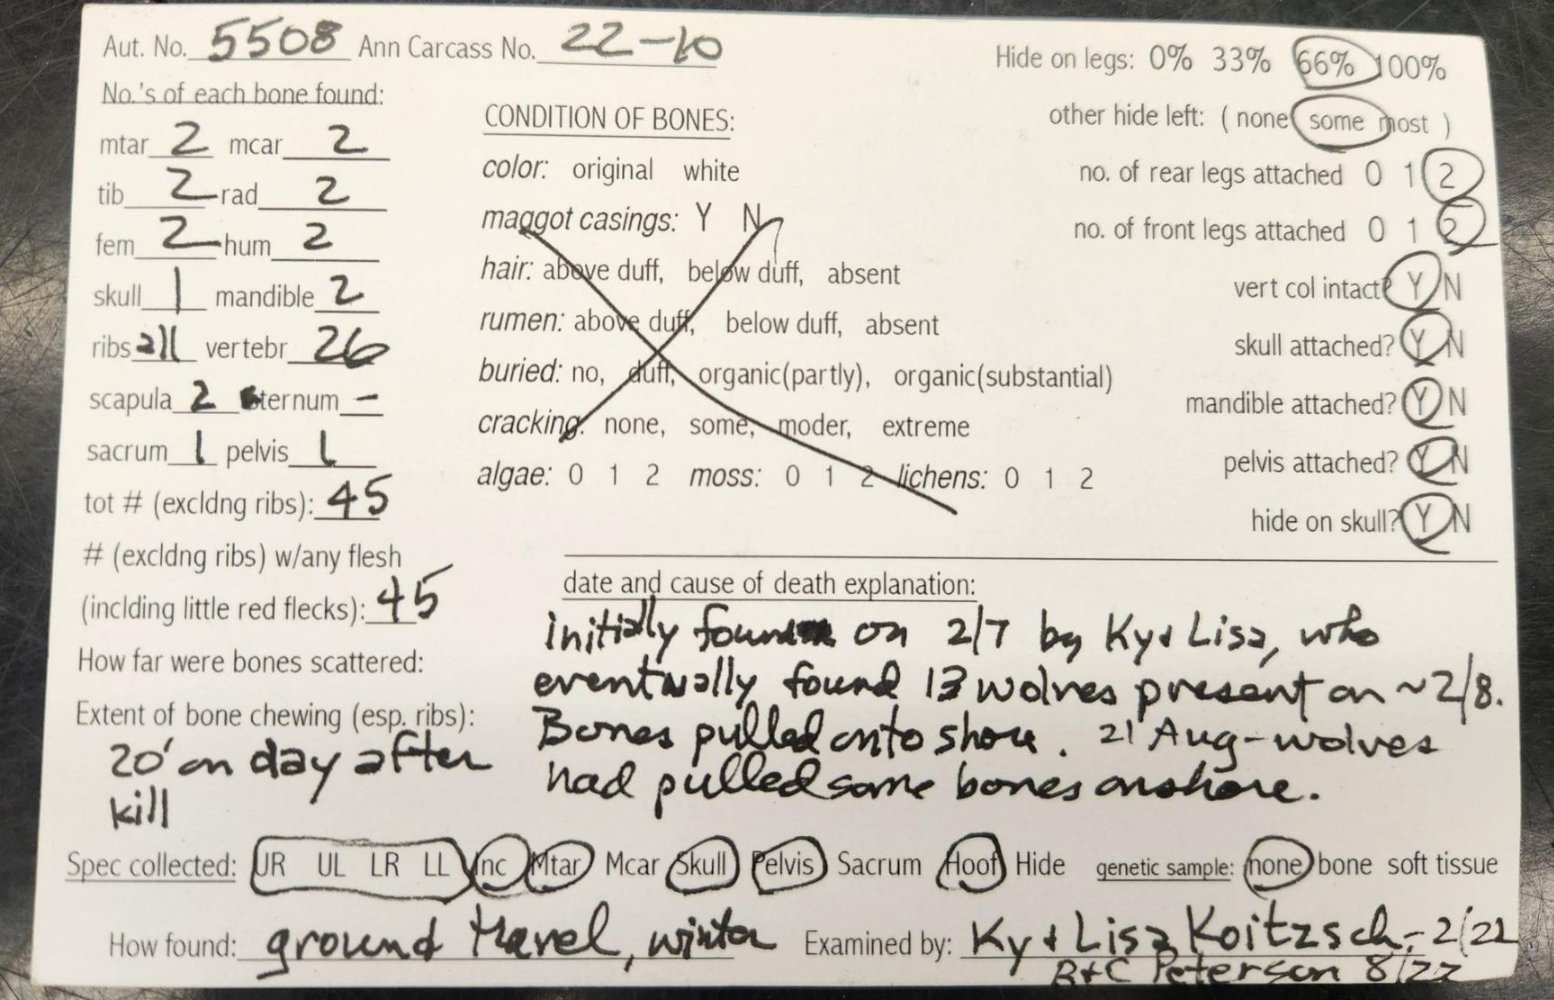 Aut. No. 5508 Ann Carcass No. 22-10
No.'s of each bone found:
mtar 2 mcar 2
tib 2 rad 2
fem 2 hum 2
skull 1 mandible 2
ribs all vertebr 26
scapula 2 sternum -
sacrum 1 pelvis 1
tot # (excldng ribs): 45
# (excldng ribs) w/any flesh
(inclding little red flecks): 45
How far were bones scattered:
Extent of bone chewing (esp. ribs):
20' on day after
kill
CONDITION OF BONES:
color: original white
maggot casings: Y N
hair: above duff, below duff, absent
rumen: above duff, below duff, absent
buried: no, duff, organic(partly), organic(substantial)
cracking: none, some, moder, extreme
algae: 0 1 2 moss: 0 1 2 lichens: 0 1 2
Hide on legs: 0% 33% 66% 100%
other hide left: ( none some most )
no. of rear legs attached 0 1 2
no. of front legs attached 0 1 2
vert col intact? Y N
skull attached? Y N
mandible attached? Y N
pelvis attached? Y N
hide on skull? Y N
date and cause of death explanation:
initially found on 2/7 by Ky & Lisa, who
eventually found 13 wolves present on ~2/8.
Bones pulled onto shore. 21 Aug - wolves
had pulled some bones onshore.
Spec collected: UR UL LR LL Inc Mtar Mcar Skull Pelvis Sacrum Hoof Hide genetic sample: none bone soft tissue
How found: ground travel, winter Examined by: Ky & Lisa Koitzsch - 2/22
R+C Peterson 8/22